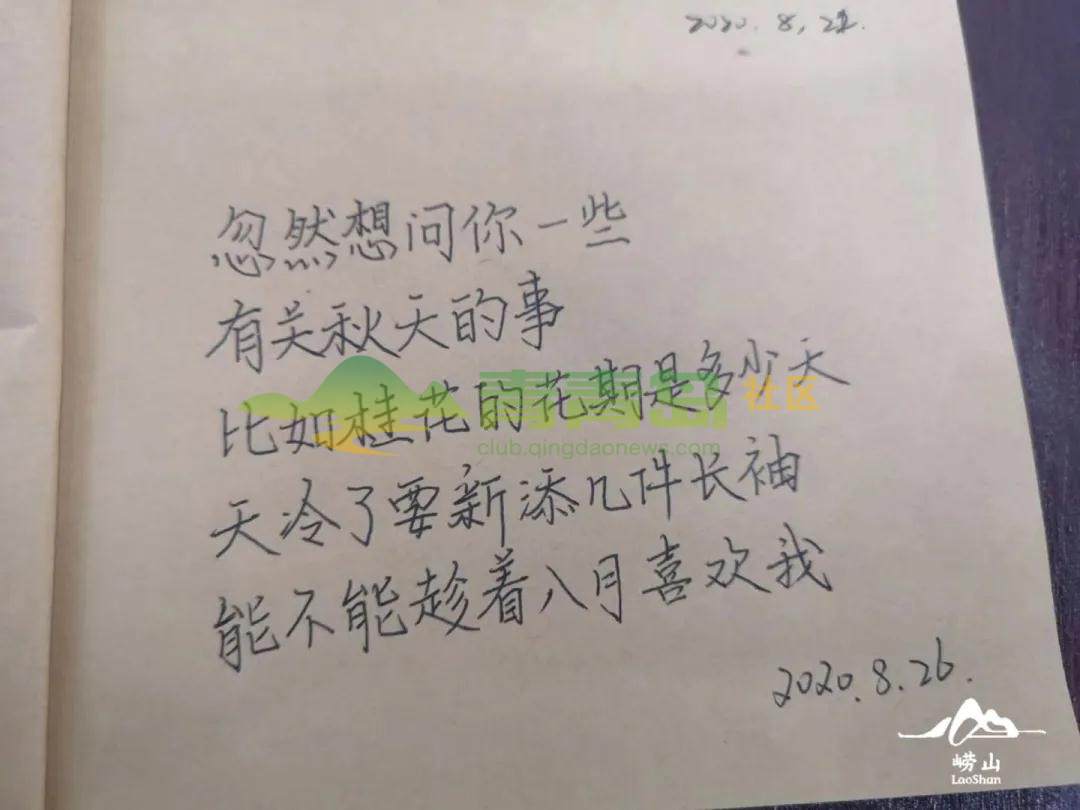 2020.8.22.
忽然想问你一些
有关秋天的事
比如桂花的花期是多少天
青青岛社区
club.qingdaonews.com
天冷了要新添几件长袖
能不能趁着八月喜欢我
2020.8.26.
崂山
LaoShan